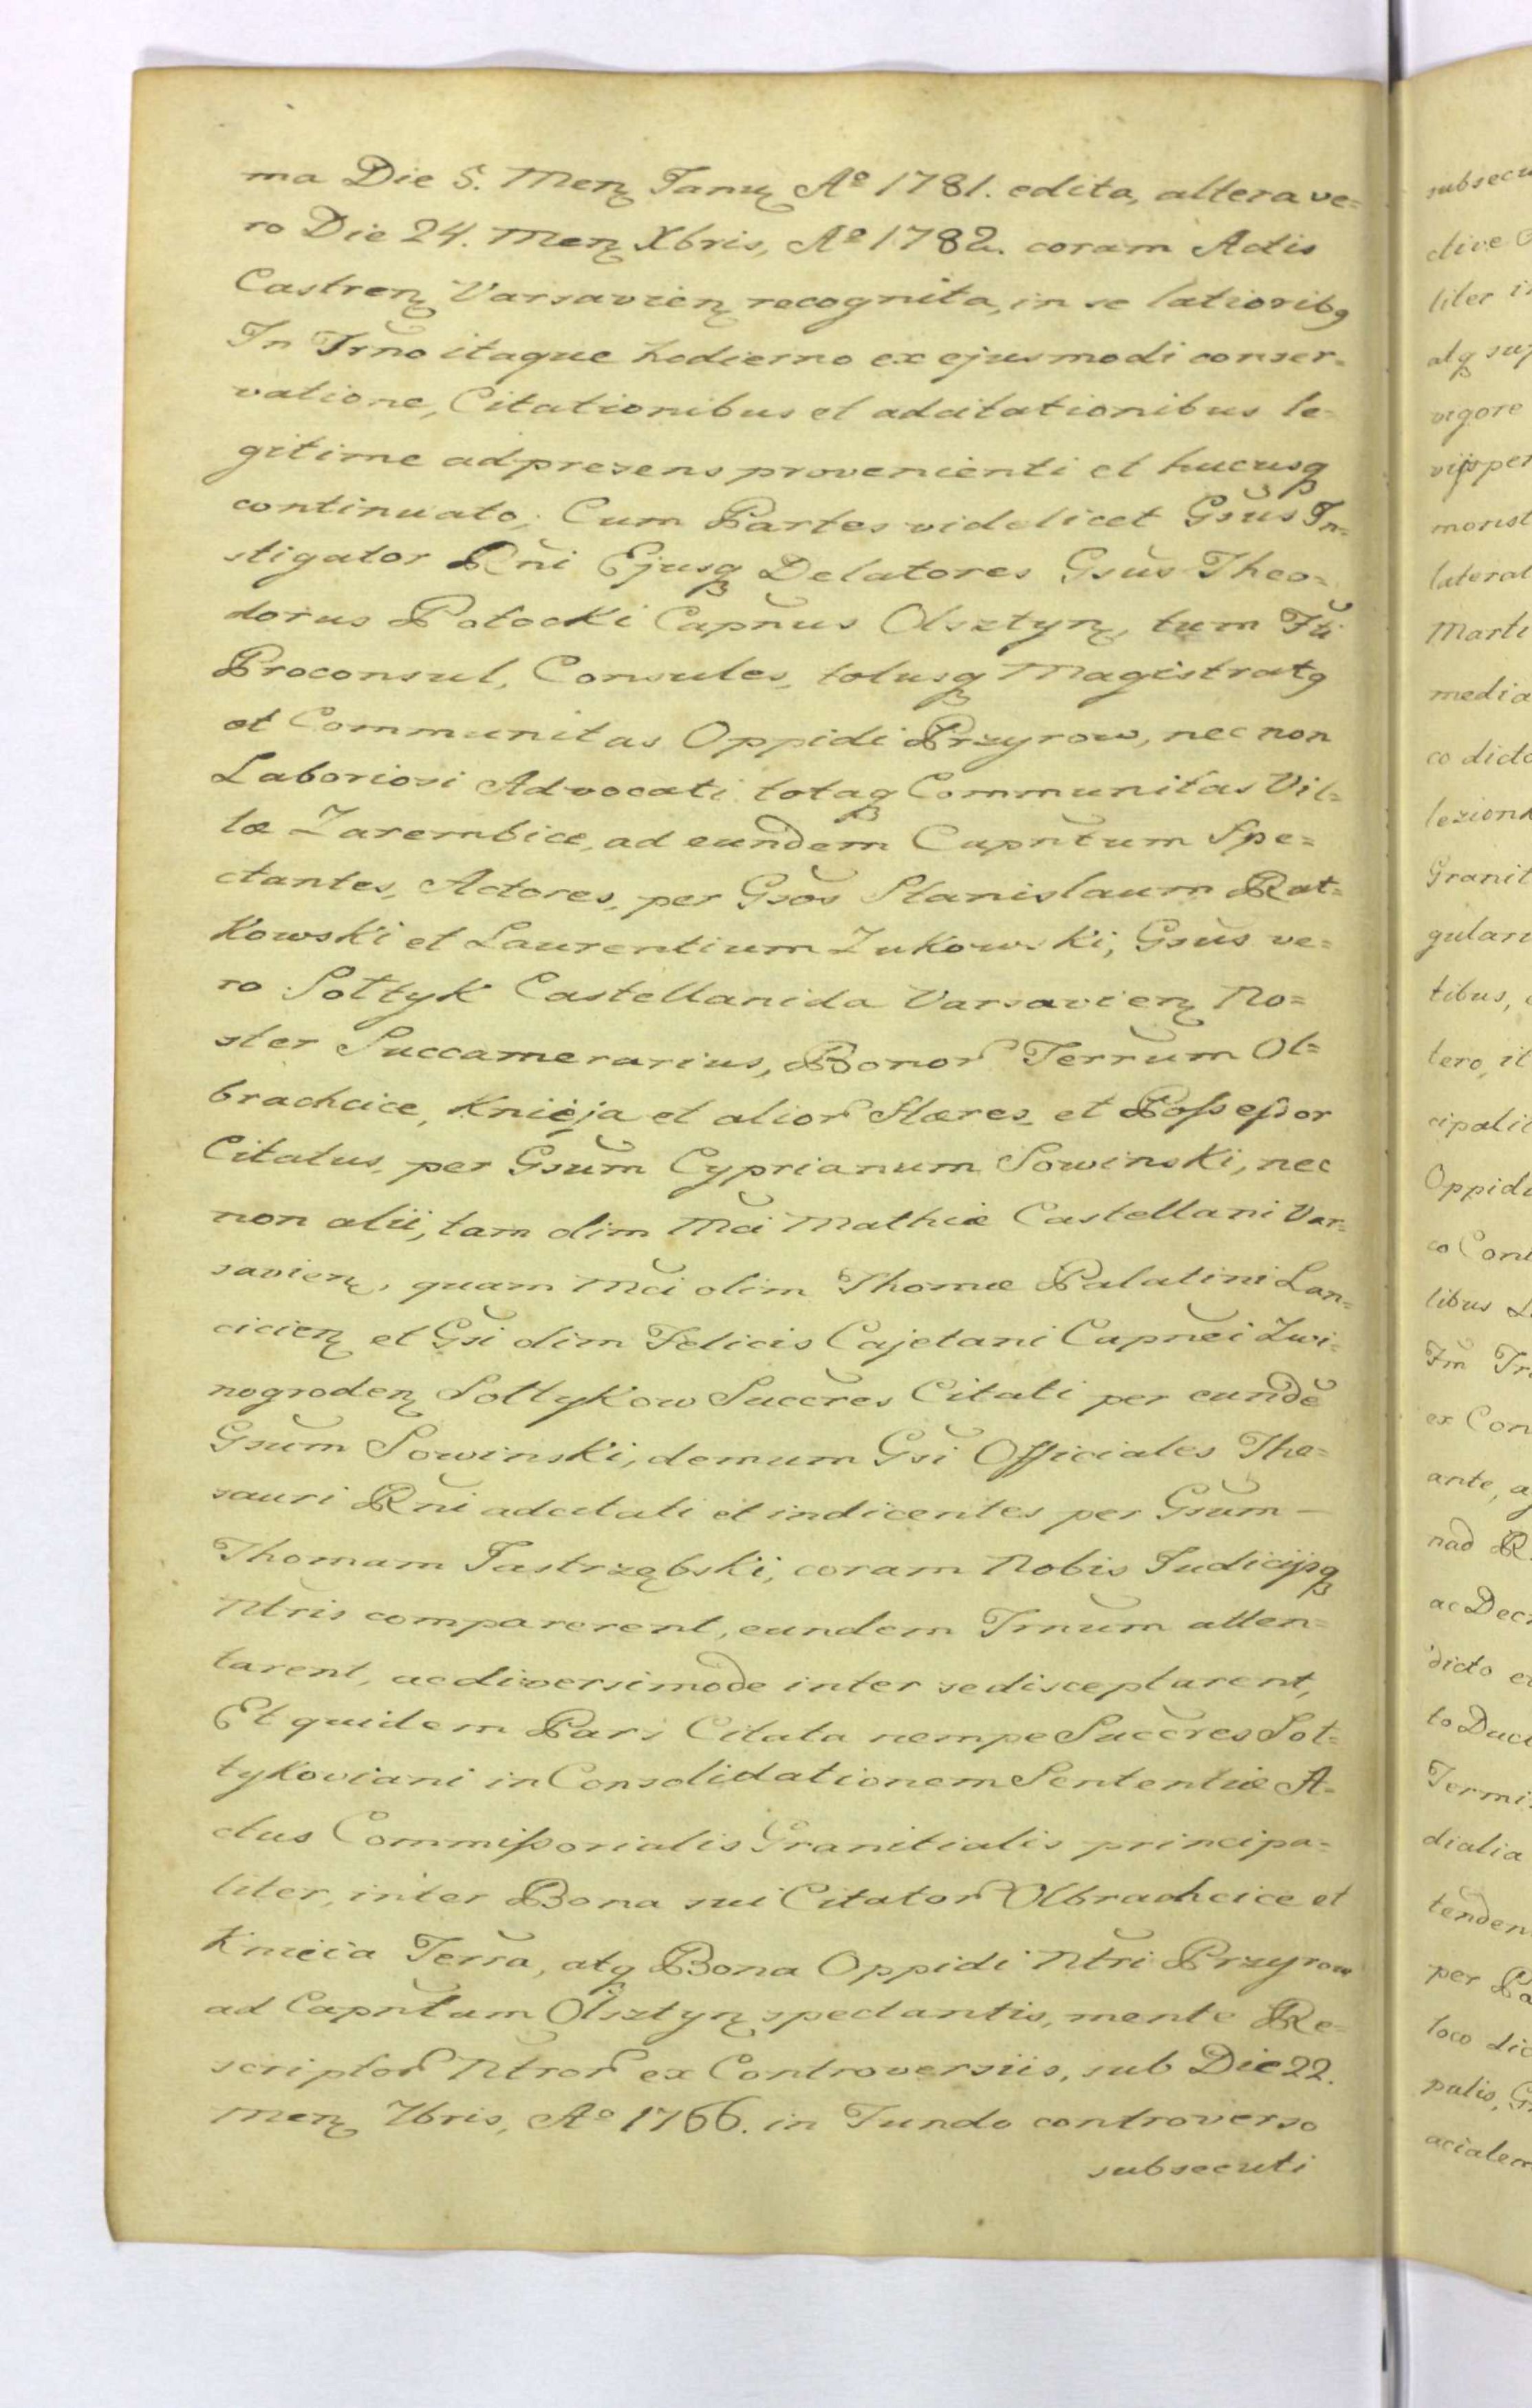 ma Die 5. Menȩ Januȩ Aº 1781. edita, altera ve=
ro Die 24. Menȩ Xbris, Aº 1782. coram Actis
Castrenȩ Varsavienȩ recognita, in se latioribꝯ
In Trno itaque hodierno ex ejusmodi conser=
vatione, Citationibus et adcitationibus le=
gitime ad presens provenienti et hucusq
continuato; Cum Partes videlicet Gsus In=
stigator Rni Ejusq Delatores Gsus Theo=
dorus Potocki Capnus Olsztynȩ, tum Fti
Proconsul, Consules, totusq Magistratꝯ
et Communitas Oppidi Przyrow, nec non
Laboriosi Advocati totaq Communitas Vil=
læ Zarembice, ad eundem Capntum Spe=
ctantes, Actores, per Gsos Stanislaum Rut=
kowski et Laurentium Zukowski, Gsus ve=
ro Sołtyk Castellanida Varsavienȩ No=
ster Succamerarius, Bonor Terrum Ol=
brachcice, Knieja et alior Hæres et Possessor
Citatus, per Gsum Cyprianum Sowinski, nec
non alii, tam olim Mci Mathiæ Castellani Var=
savienȩ, quam Mci olim Thomæ Palatini Lan=
cicienȩ et Gsi olim Felicis Cajetani Capnei Zwi=
nogrodenȩ Sołtykow Succres Citati per eunde
Gsum Sowinski, demum Gsi Officiales The=
sauri Rni adcitati et indicentes per Gsum —
Thomam Jastrzębski, coram Nobis Judicijsq
Ntris comparerent, eundem Trnum atten=
tarent, ac diversimode inter se disceptarent,
Et quidem Pars Citata nempe Succres Soł=
tykoviani in Consolidationem Sententiæ A=
ctus Commissorialis Granitialis principa=
liter, inter Bona sui Citator Olbrachcice et
Knieia Terra, atq Bona Oppidi Ntri Przyrow
ad Capntum Olsztynȩ spectantis, mente Re=
scriptor Ntror ex Controversiis, sub Die 22.
Menȩ 7bris, Aº 1766. in Fundo controverso
subsecuti